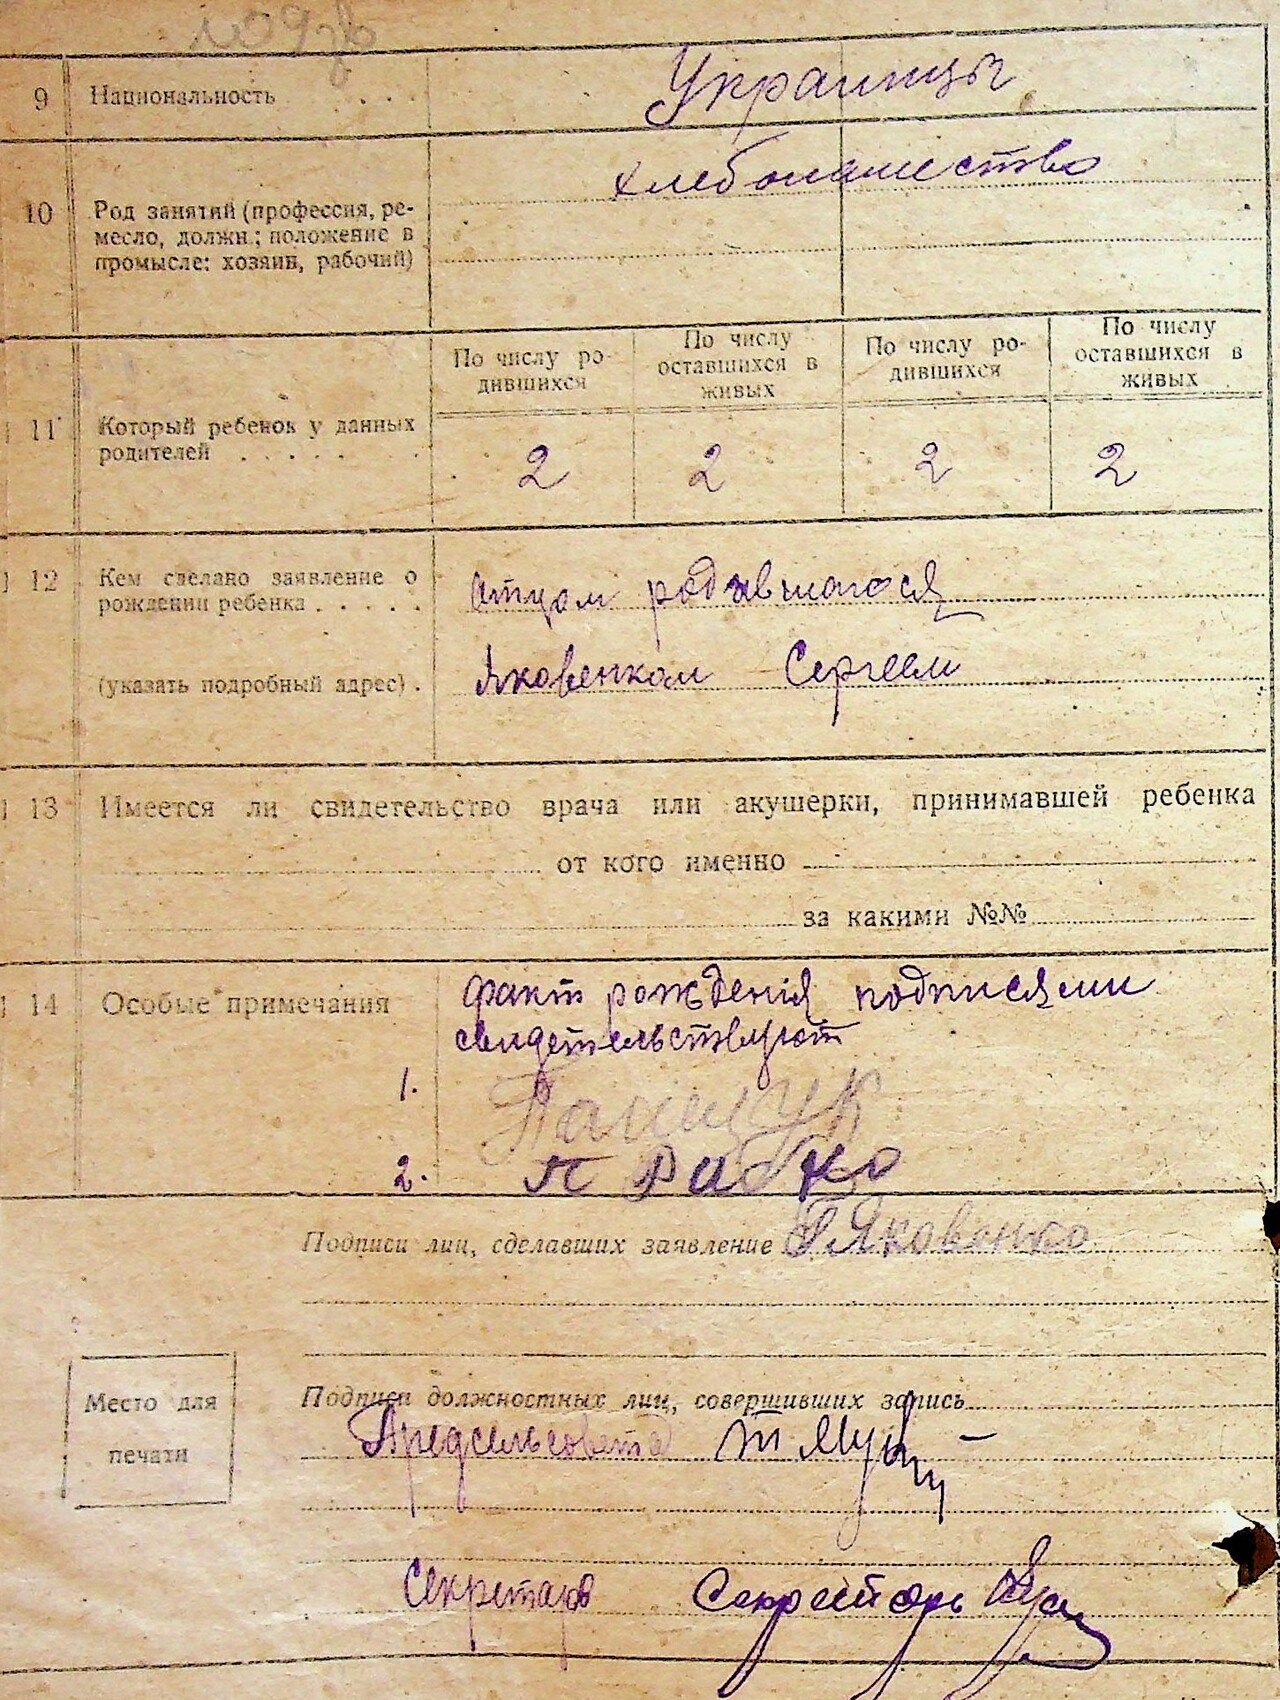 9 Национальность . . . Украинцы
хлебопашество
10 Род занятий (профессия, ре-
месло, должн.; положение в
промысле: хозяин, рабочий)
По числу ро-
дившихся
По числу
оставшихся в
живых
По числу ро-
дившихся
По числу
оставшихся в
живых
11 Который ребенок у данных
родителей . . . . . 2 2 2 2
12 Кем сделано заявление о
рождении ребенка . . . . . отцом родившагося
(указать подробный адрес) . Яковенком Сергеем
13 Имеется ли свидетельство врача или акушерки, принимавшей ребенка
от кого именно
за какими №№
14 Особые примечания факт рождения подписями
свидетельствуют
1. Панещук
2. П Рабко
Подписи лиц, сделавших заявление Яковенко
Место для
печати
Подписи должностных лиц, совершивших запись
Предсельсовета
Секретарь Секретарь